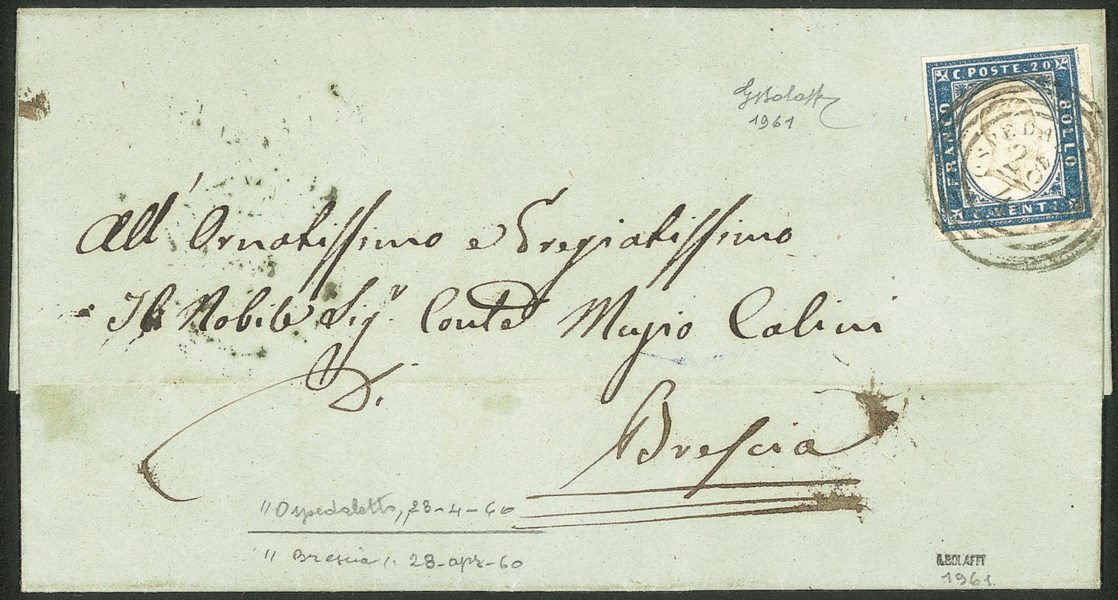 GBolaffi
1961
C. POSTE. 20
FRANCO
BOLLO
CENT
All' Ornatissimo e Pregiatissimo
Il Nobile Sigr. Conte Muzio Calini
Di
Brescia
"Ospedaletto, 23-4-60
"Brescia" 23-apr-60
A.BOLAFFI
1961.